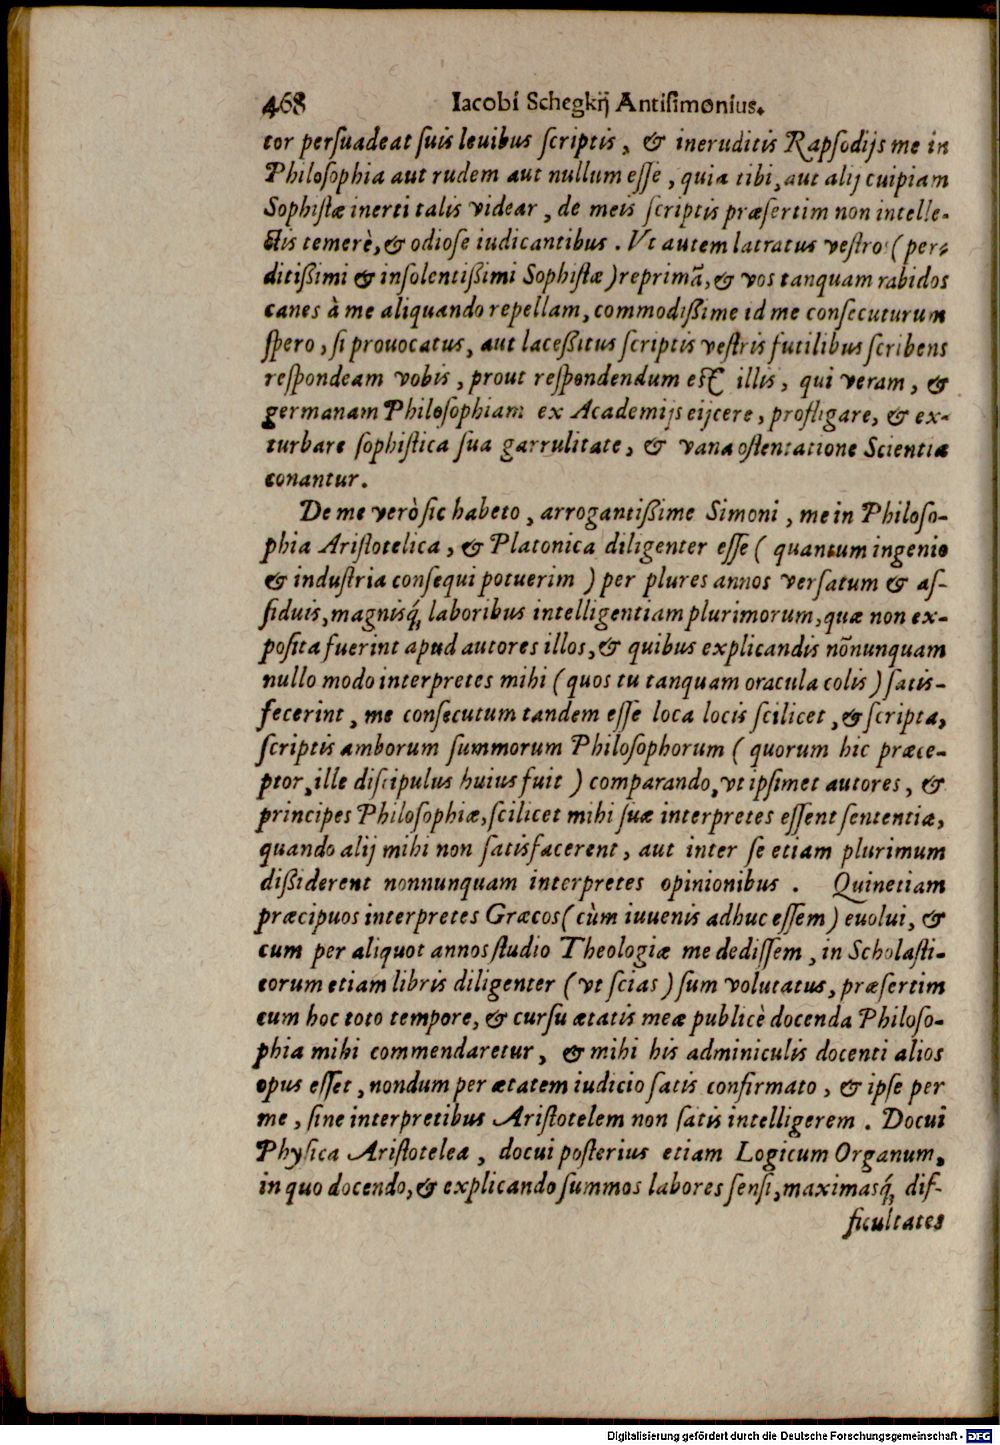 468 Iacobi Schegkij Antisimonius.
tor persuadeat suis leuibus scriptis, & ineruditis Rapsodijs me in
Philosophia aut rudem aut nullum esse, quia tibi, aut alij cuipiam
Sophistæ inerti talis videar, de meis scriptis præsertim non intelle-
ctis temerè, & odiose iudicantibus. Vt autem latratus vestros (per-
ditißimi & insolentißimi Sophistæ) reprimā, & vos tanquam rabidos
canes à me aliquando repellam, commodißime id me consecuturum
spero, si prouocatus, aut laceßitus scriptis vestris futilibus scribens
respondeam vobis, prout respondendum est illis, qui veram, &
germanam Philosophiam ex Academijs eijcere, profligare, & ex-
turbare sophistica sua garrulitate, & vana ostentatione Scientiæ
conantur.
De me verò sic habeto, arrogantißime Simoni, me in Philoso-
phia Aristotelica, & Platonica diligenter esse (quantum ingenio
& industria consequi potuerim) per plures annos versatum & as-
siduis, magnisq́; laboribus intelligentiam plurimorum, quæ non ex-
posita fuerint apud autores illos, & quibus explicandis nōnunquam
nullo modo interpretes mihi (quos tu tanquam oracula colis) satis-
fecerint, me consecutum tandem esse loca locis scilicet, & scripta,
scriptis amborum summorum Philosophorum (quorum hic præce-
ptor, ille discipulus huius fuit) comparando, vt ipsimet autores, &
principes Philosophiæ, scilicet mihi suæ interpretes essent sententiæ,
quando alij mihi non satisfacerent, aut inter se etiam plurimum
dißiderent nonnunquam interpretes opinionibus. Quinetiam
præcipuos interpretes Græcos (cùm iuuenis adhuc essem) euolui, &
cum per aliquot annos studio Theologiæ me dedissem, in Scholasti-
corum etiam libris diligenter (vt scias) sum volutatus, præsertim
cum hoc toto tempore, & cursu ætatis meæ publicè docenda Philoso-
phia mihi commendaretur, & mihi his adminiculis docenti alios
opus esset, nondum per ætatem iudicio satis confirmato, & ipse per
me, sine interpretibus Aristotelem non satis intelligerem. Docui
Physica Aristotelea, docui posterius etiam Logicum Organum,
in quo docendo, & explicando summos labores sensi, maximasq́; dif-
ficultates
Digitalisierung gefördert durch die Deutsche Forschungsgemeinschaft - DFG